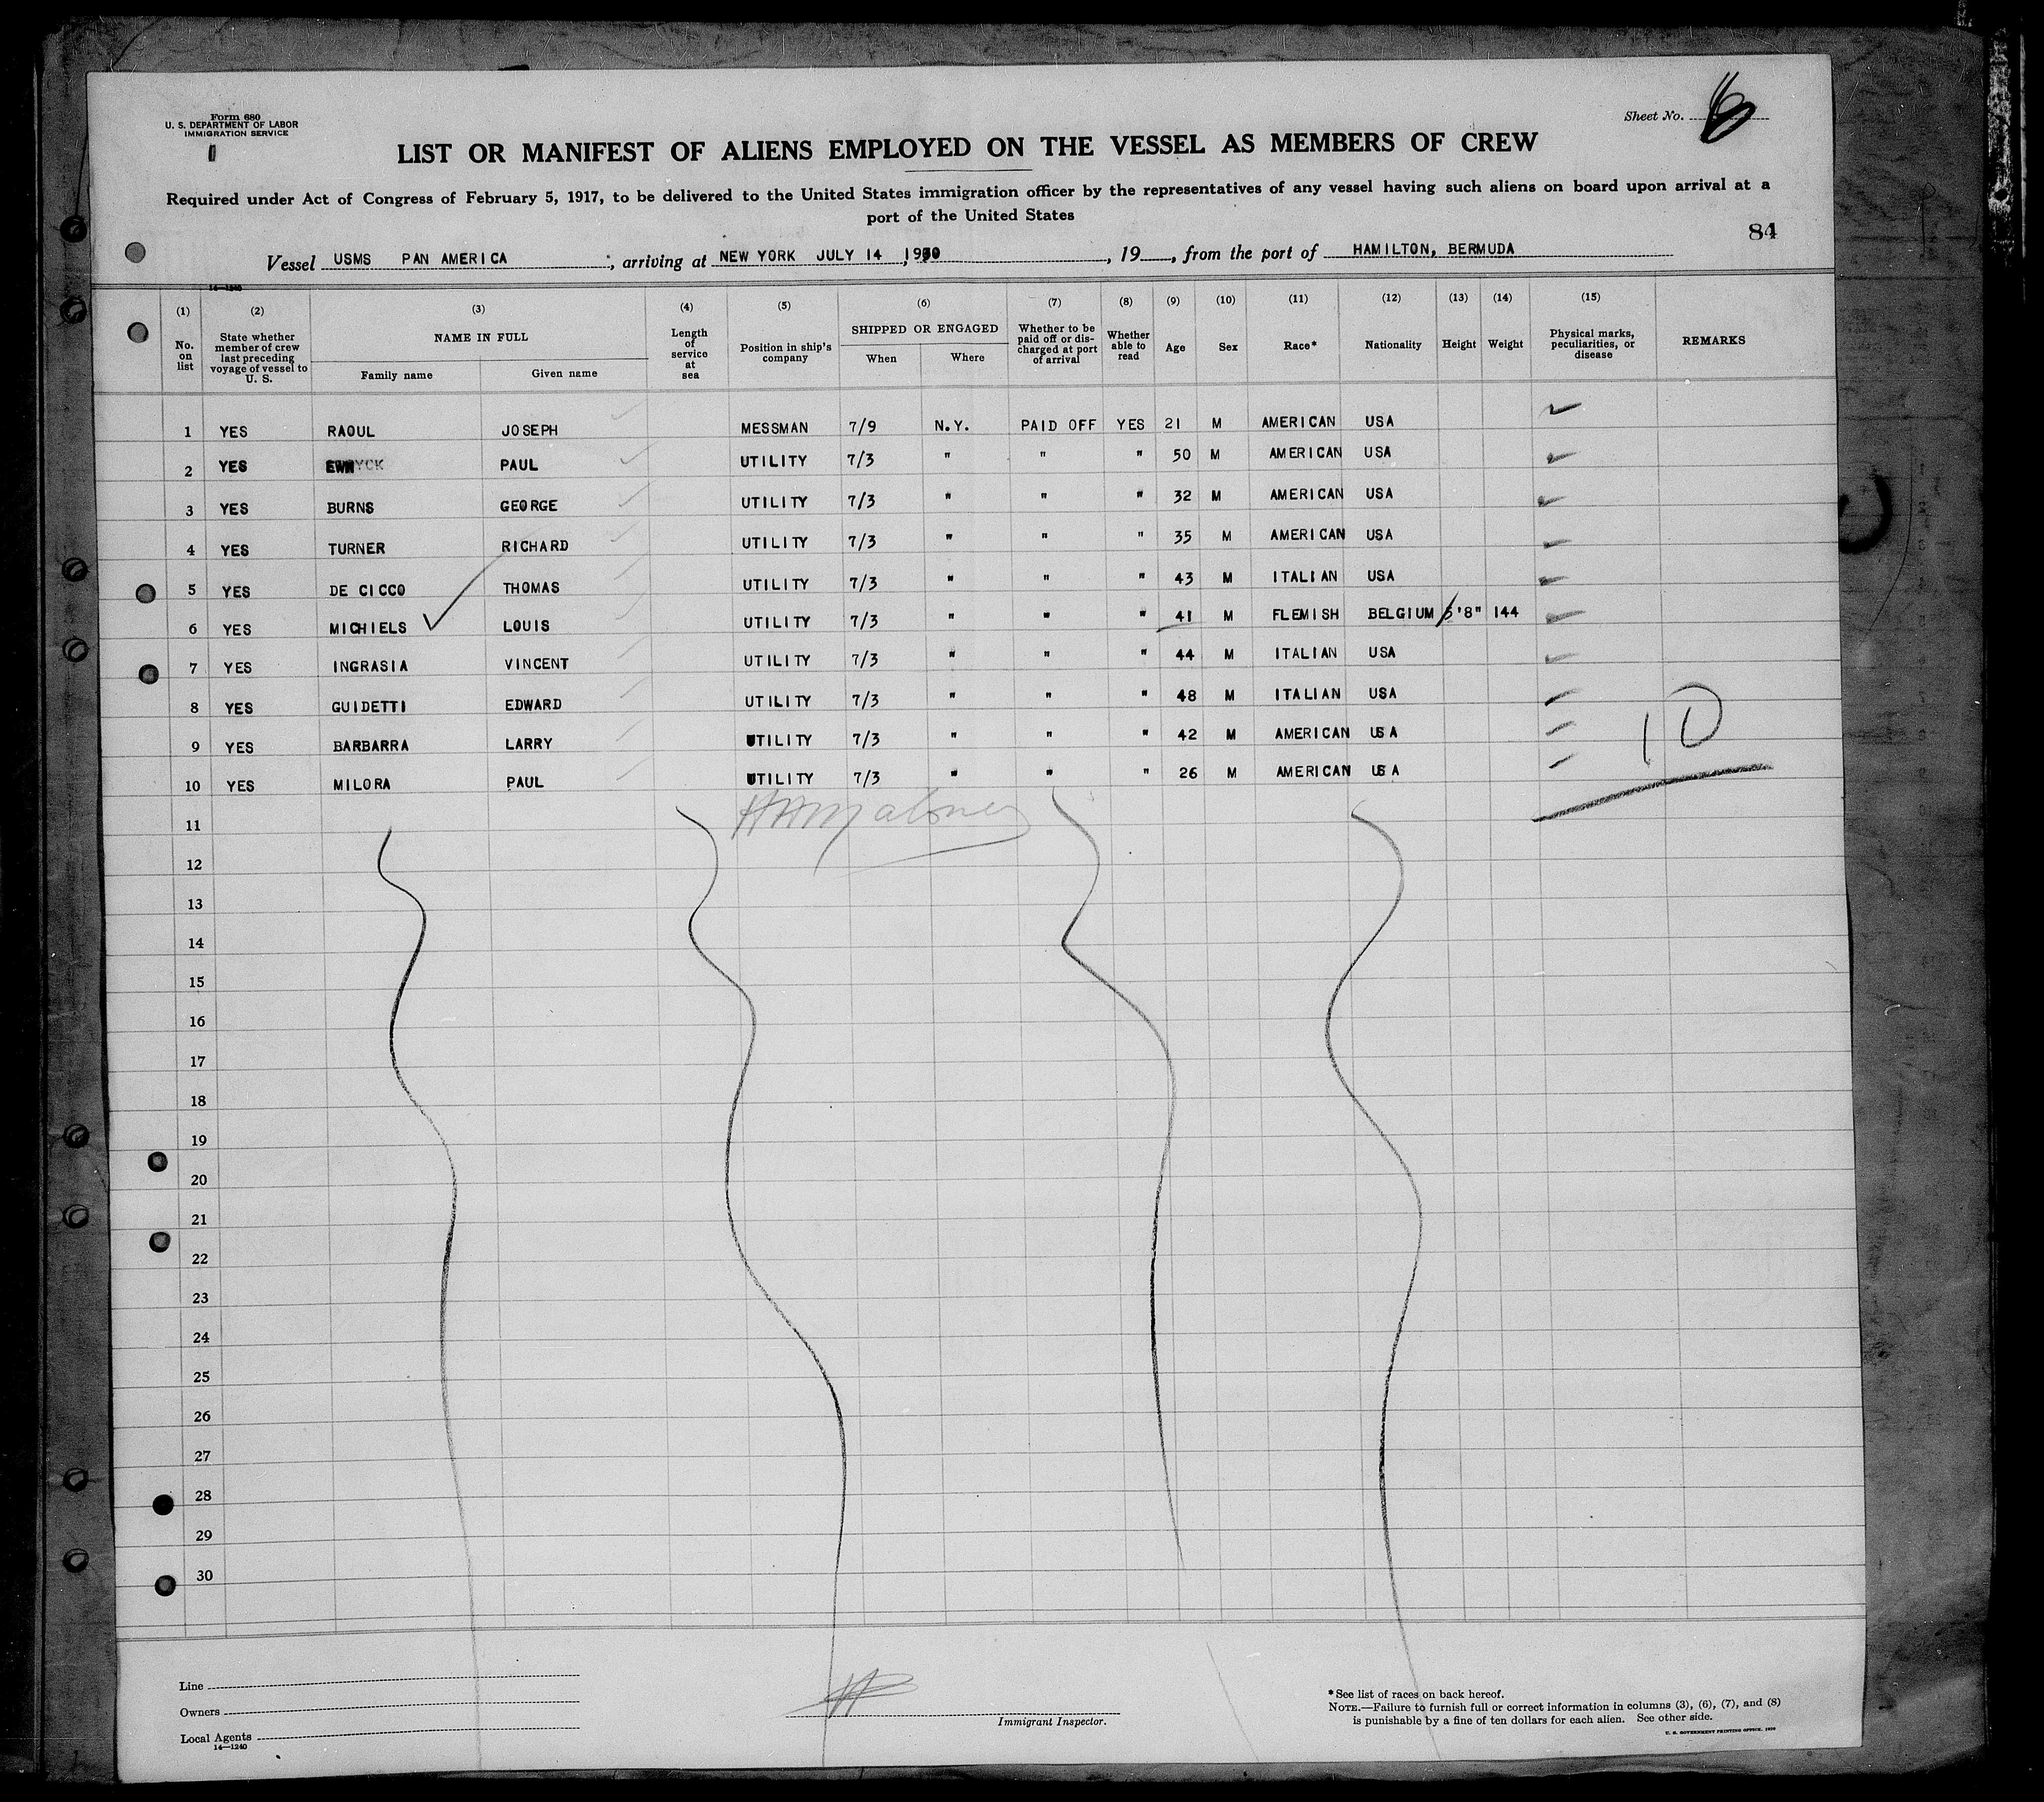 Form 680
U. S. DEPARTMENT OF LABOR
IMMIGRATION SERVICE
Sheet No. 6
LIST OR MANIFEST OF ALIENS EMPLOYED ON THE VESSEL AS MEMBERS OF CREW
Required under Act of Congress of February 5, 1917, to be delivered to the United States immigration officer by the representatives of any vessel having such aliens on board upon arrival at a
port of the United States
84
Vessel USMS PAN AMERICA, arriving at NEW YORK JULY 14, 1930, 19, from the port of HAMILTON, BERMUDA
14—1240
(1) (2) (3) (4) (5) (6) (7) (8) (9) (10) (11) (12) (13) (14) (15)
No. on list State whether member of crew last preceding voyage of vessel to U. S. NAME IN FULL Family name Given name Length of service at sea Position in ship's company SHIPPED OR ENGAGED When Where Whether to be paid off or discharged at port of arrival Whether able to read Age Sex Race* Nationality Height Weight Physical marks, peculiarities, or disease REMARKS
1 YES RAOUL JOSEPH MESSMAN 7/9 N.Y. PAID OFF YES 21 M AMERICAN USA
2 YES PAUL UTILITY 7/3 " " " 50 M AMERICAN USA
3 YES BURNS GEORGE UTILITY 7/3 " " " 32 M AMERICAN USA
4 YES TURNER RICHARD UTILITY 7/3 " " " 35 M AMERICAN USA
5 YES DE CICCO THOMAS UTILITY 7/3 " " " 43 M ITALIAN USA
6 YES MICHIELS LOUIS UTILITY 7/3 " " " 41 M FLEMISH BELGIUM 5'8" 144
7 YES INGRASIA VINCENT UTILITY 7/3 " " " 44 M ITALIAN USA
8 YES GUIDETTI EDWARD UTILITY 7/3 " " " 48 M ITALIAN USA
9 YES BARBARRA LARRY UTILITY 7/3 " " " 42 M AMERICAN USA
10 YES MILORA PAUL UTILITY 7/3 " " " 26 M AMERICAN USA
10
11
12
13
14
15
16
17
18
19
20
21
22
23
24
25
26
27
28
29
30
Line
Owners
Local Agents
14—1240
Immigrant Inspector.
*See list of races on back hereof.
NOTE.—Failure to furnish full or correct information in columns (3), (6), (7), and (8)
is punishable by a fine of ten dollars for each alien. See other side.